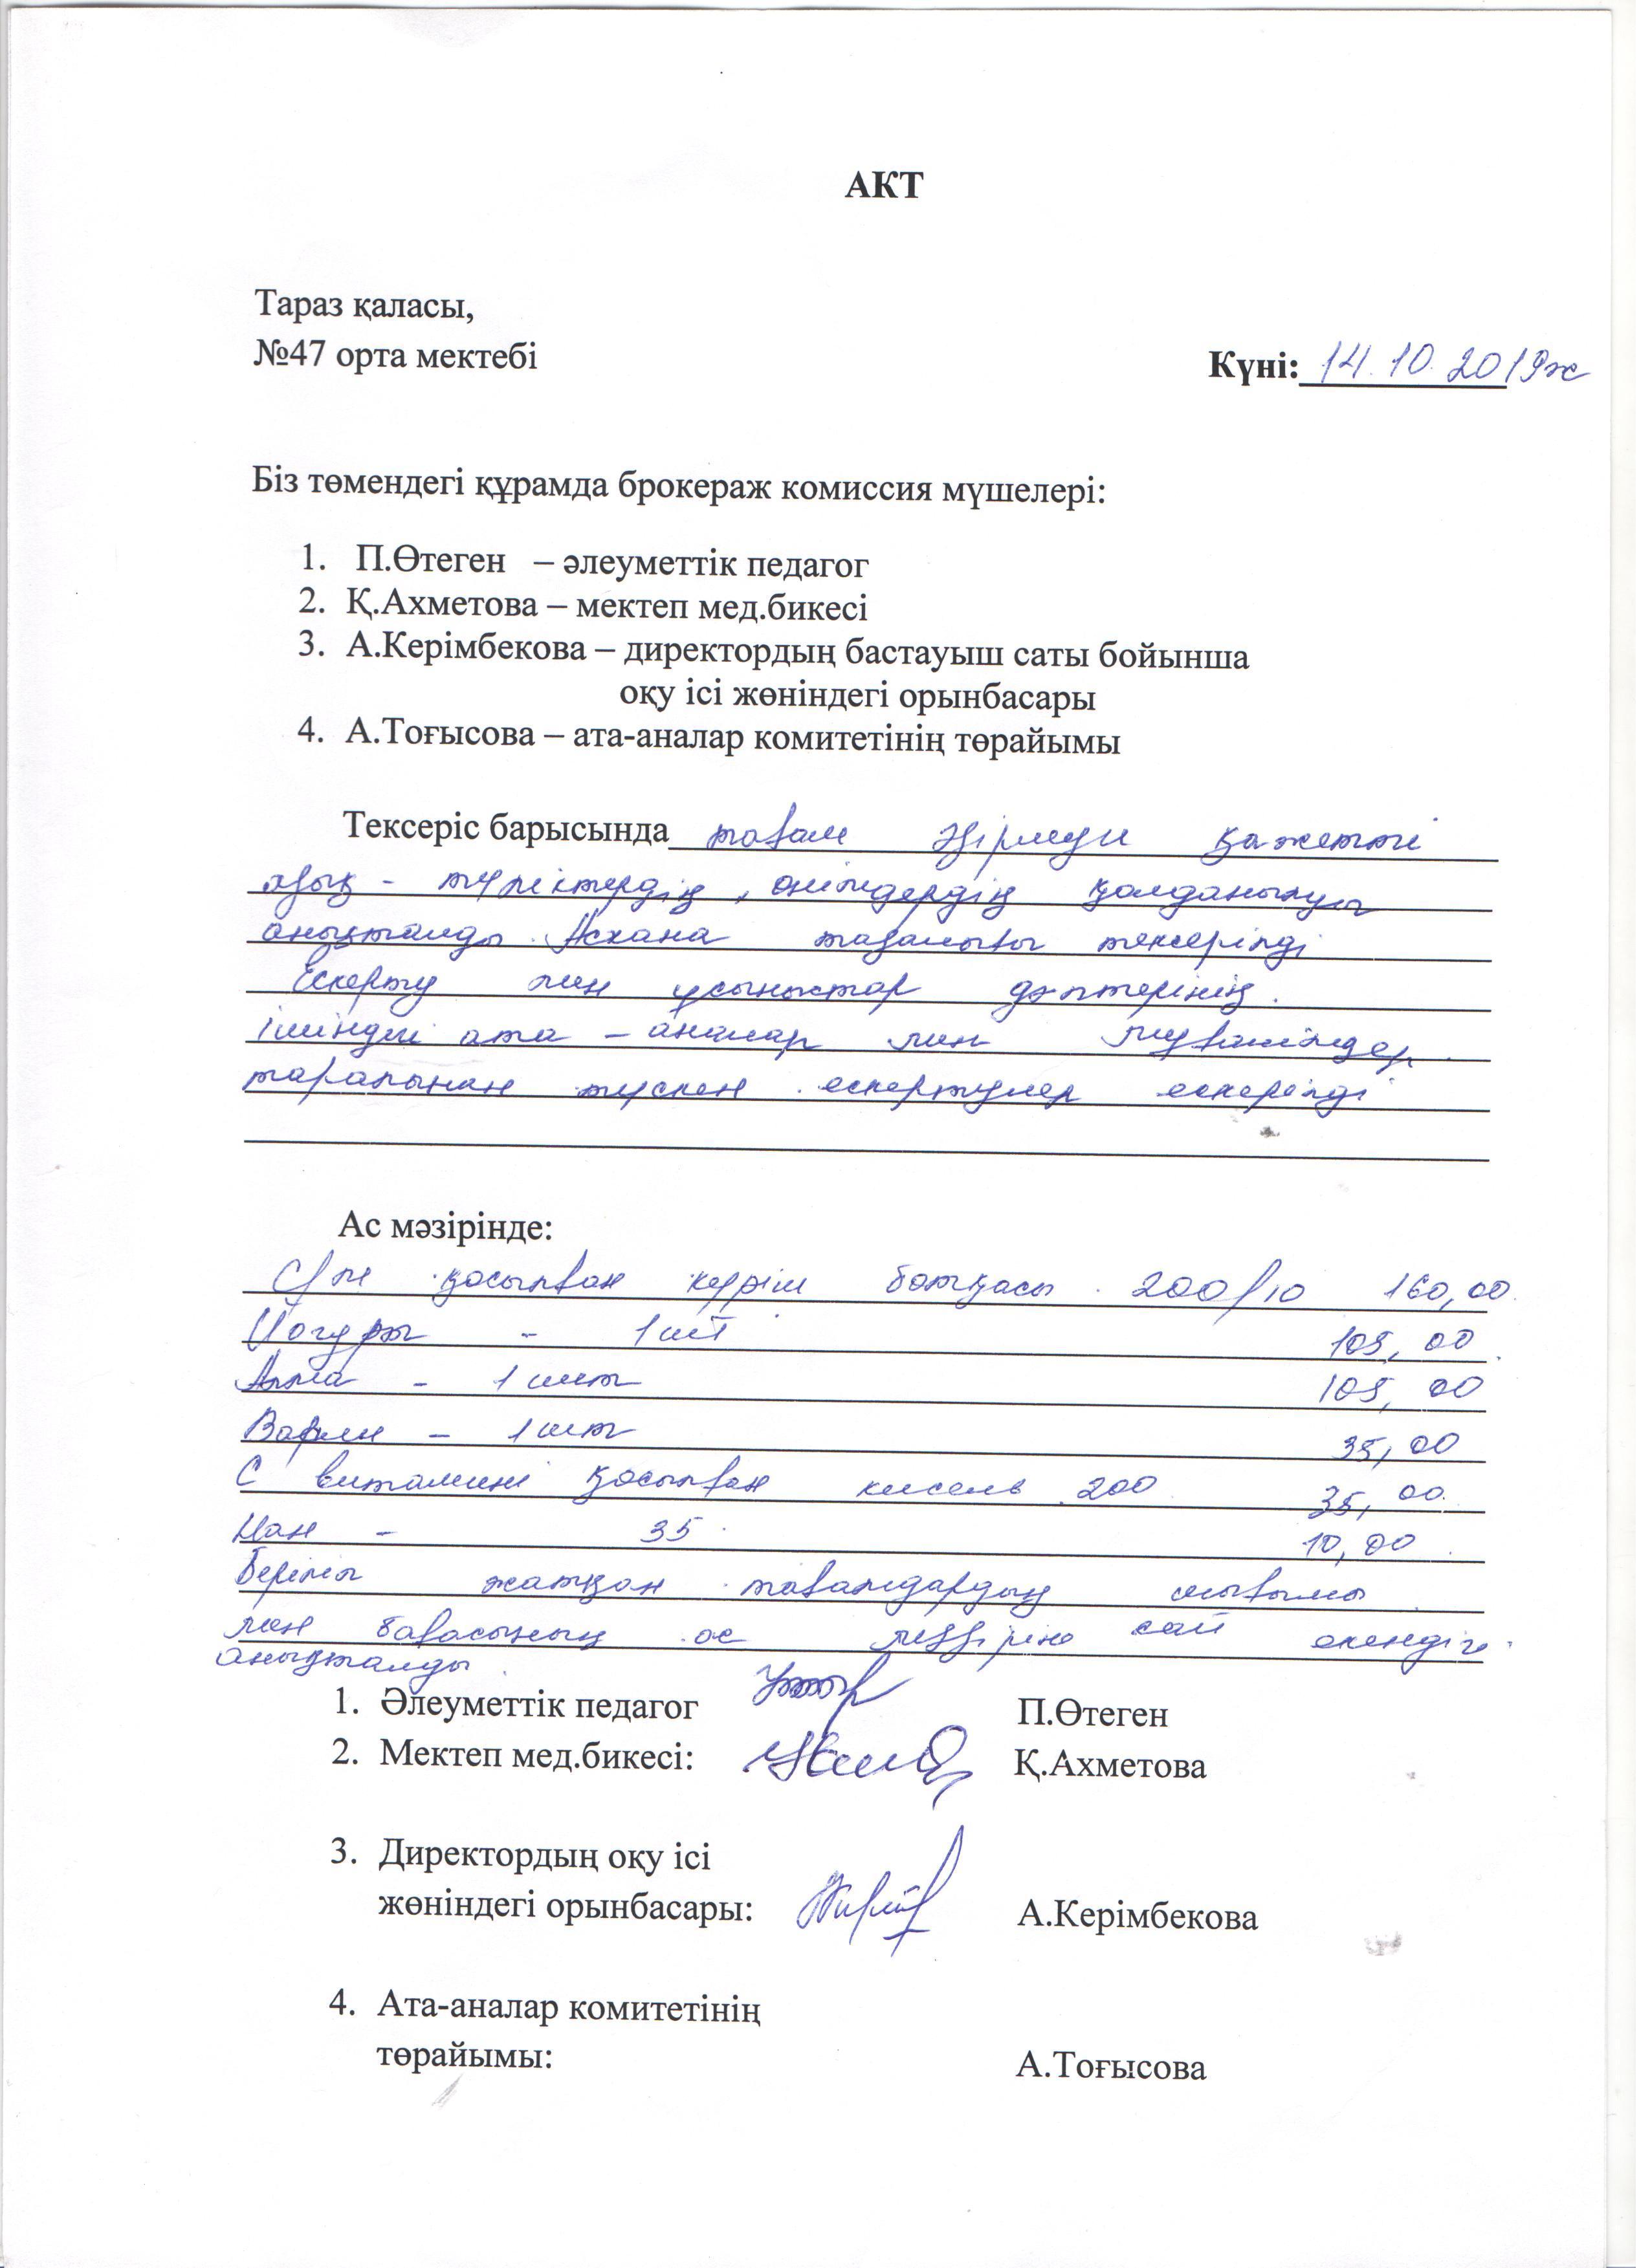 АКТ
Тараз қаласы,
№47 орта мектебі
Күні: 14.10.2019ж
Біз төмендегі құрамда брокераж комиссия мүшелері:
1. П.Өтеген – әлеуметтік педагог
2. Қ.Ахметова – мектеп мед.бикесі
3. А.Керімбекова – директордың бастауыш саты бойынша
оқу ісі жөніндегі орынбасары
4. А.Тоғысова – ата-аналар комитетінің төрайымы
Тексеріс барысында тағам әзірлеуи қажетті
азық - түліктердің, өнімдердің қолданылуы
анықталды. Асхана тазалығы тексерілді
Ескерту мен ұсыныстар дәптерінің
ішіндегі ата - аналар мен мұғалімдер
тарапынан түскен ескертулер ескерілді
Ас мәзірінде:
С/м қосылған күріш ботқасы 200/10 160,00
Йогурт - 1 шт 105,00
Алма - 1 шт 105,00
Вафли - 1 шт 35,00
С витамині қосылған кисель 200 35,00
Нан - 35 10,00
Беріліп жатқан тағамдардың шығымы
мен бағасының ас мәзіріне сай екендігі
анықталды
1. Әлеуметтік педагог П.Өтеген
2. Мектеп мед.бикесі: Қ.Ахметова
3. Директордың оқу ісі
жөніндегі орынбасары: А.Керімбекова
4. Ата-аналар комитетінің
төрайымы: А.Тоғысова